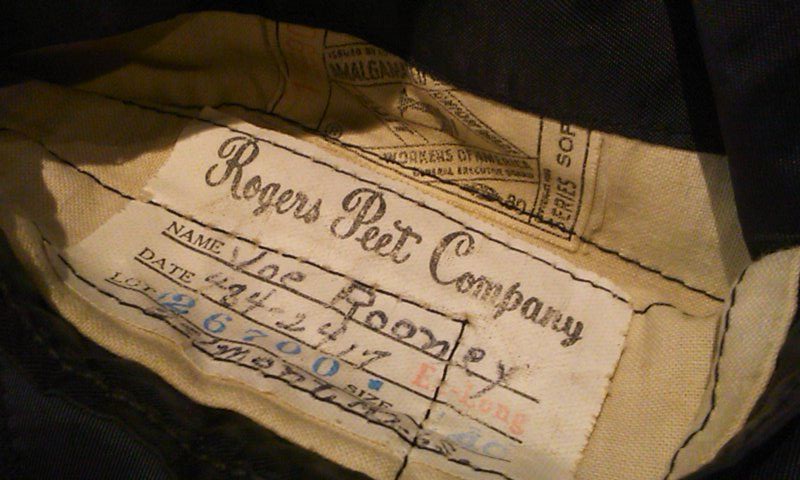 ISSUED BY
AMALGAMATED
WORKERS OF AMERICA
GENERAL EXECUTIVE BOARD
SERIES
Rogers Peet Company
NAME Joe Rooney
DATE 424-2417
LOT 26700 Ex-Long
SIZE 40